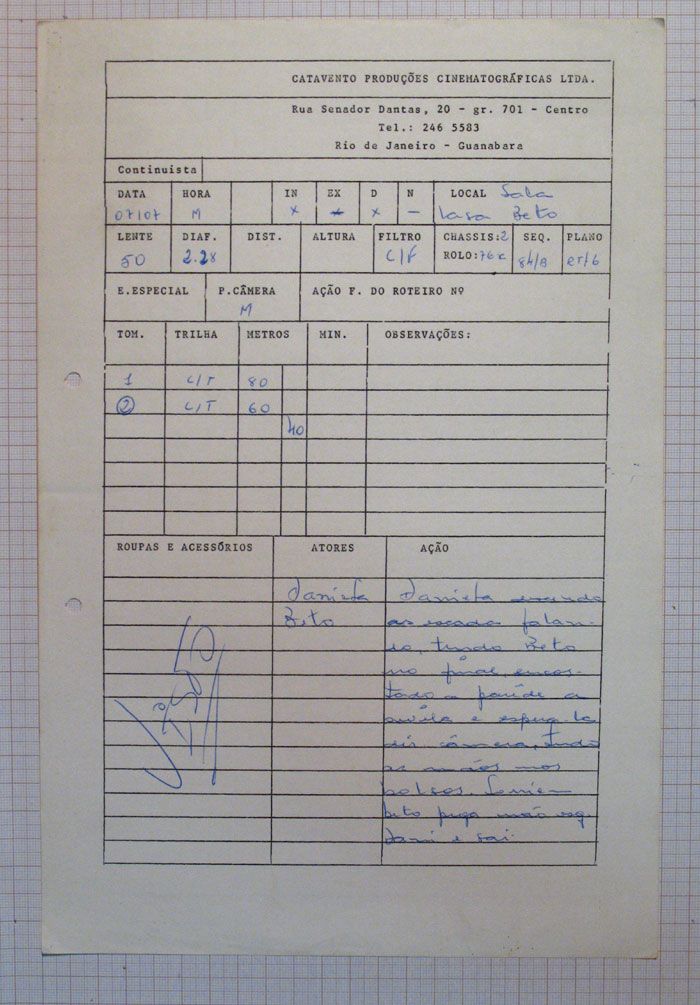 CATAVENTO PRODUÇÕES CINEMATOGRÁFICAS LTDA.
Rua Senador Dantas, 20 - gr. 701 - Centro
Tel.: 246 5583
Rio de Janeiro - Guanabara
Continuista
DATA HORA IN EX D N LOCAL Sala
07/07 M x x x — Casa Beto
LENTE DIAF. DIST. ALTURA FILTRO CHASSIS:2 SEQ. PLANO
50 2.28 C/F ROLO:76 84/B
E.ESPECIAL P.CÂMERA AÇÃO F. DO ROTEIRO Nº
M
TOM. TRILHA METROS MIN. OBSERVAÇÕES:
1 C/T 80
2 C/T 60
40
ROUPAS E ACESSÓRIOS ATORES AÇÃO
Daniela Daniela
Beto as escada falan-
do, tendo Beto
no final, encos-
tado a parede a
ouvila e espera-la
dir câmera, tendo
as mãos nos
bolsos.
beto pega mão esq.
Dani e sai.